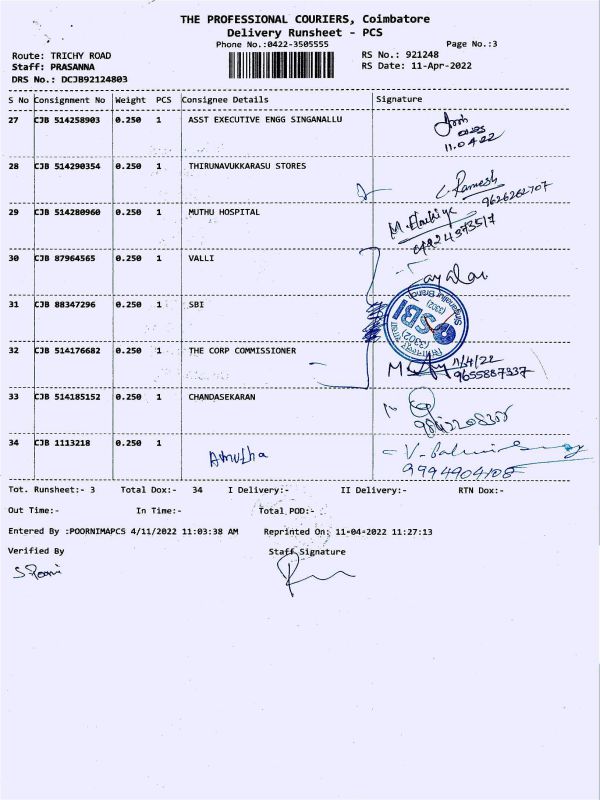 THE PROFESSIONAL COURIERS, Coimbatore
Delivery Runsheet - PCS
Phone No.:0422-3505555
Page No.:3
Route: TRICHY ROAD
RS No.: 921248
Staff: PRASANNA
RS Date: 11-Apr-2022
DRS No.: DCJB92124803
S No Consignment No Weight PCS Consignee Details Signature
27 CJB 514258903 0.250 1 ASST EXECUTIVE ENGG SINGANALLU
11.04.22
28 CJB 514290354 0.250 1 THIRUNAVUKKARASU STORES
C. Ramesh
9626262707
29 CJB 514280960 0.250 1 MUTHU HOSPITAL
30 CJB 87964565 0.250 1 VALLI
31 CJB 88347296 0.250 1 SBI
Singanallur Branch
(3302)
SBI
(3302)
32 CJB 514176682 0.250 1 THE CORP COMMISSIONER
11/4/22
9655887337
33 CJB 514185152 0.250 1 CHANDASEKARAN
34 CJB 1113218 0.250 1
Amutha
9994904108
Tot. Runsheet:- 3 Total Dox:- 34 I Delivery:- II Delivery:- RTN Dox:-
Out Time:- In Time:- Total POD:-
Entered By :POORNIMAPCS 4/11/2022 11:03:38 AM Reprinted On: 11-04-2022 11:27:13
Verified By Staff Signature
S Poorni